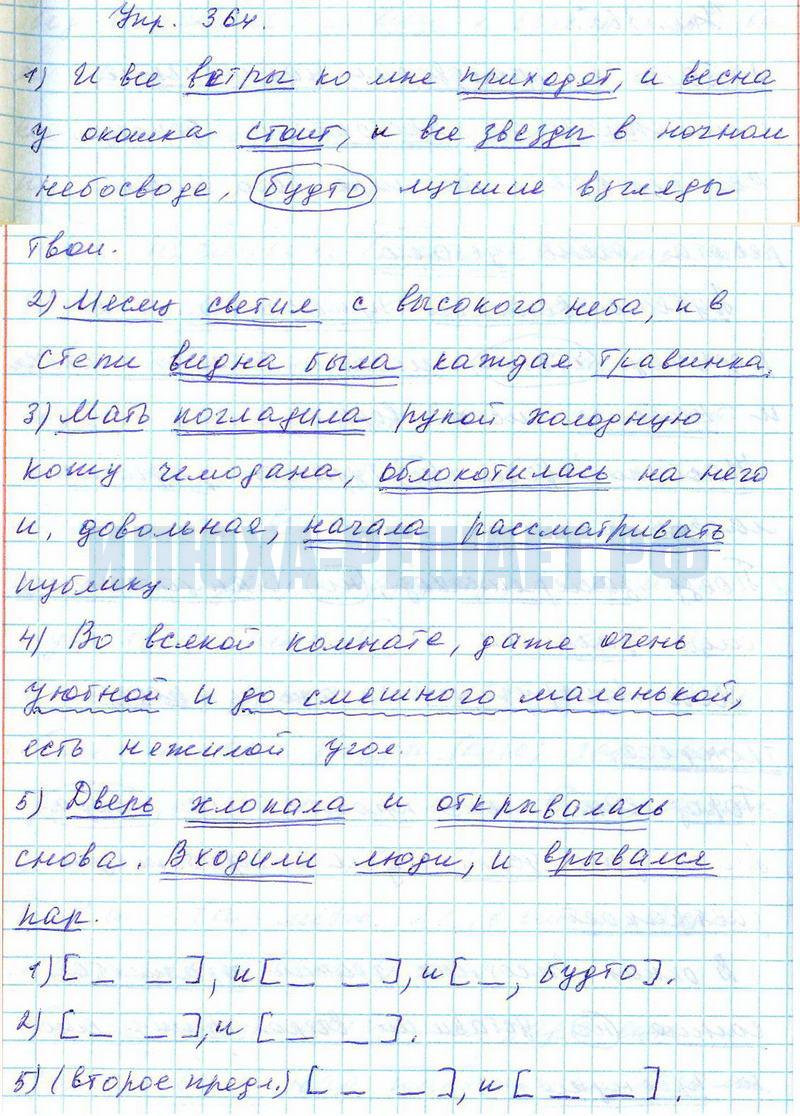 Упр. 364.
1) И все ветры ко мне приходят, и весна
у окошка стоит, и все звёзды в ночном
небосводе, будто лучшие взгляды
твои.
2) Месяц светил с высокого неба, и в
степи видна была каждая травинка.
3) Мать погладила рукой холодную
кожу чемодана, облокотилась на него
и, довольная, начала рассматривать
ИЛЮХА-РЕШАЕТ.РФ
публику.
4) Во всякой комнате, даже очень
уютной и до смешного маленькой,
есть нежилой угол.
5) Дверь хлопала и открывалась
снова. Входили люди, и врывался
пар.
1) [_ _], и [_ _], и [_, будто].
2) [_ _], и [_ _].
5) (второе предл.) [_ _], и [_ _].